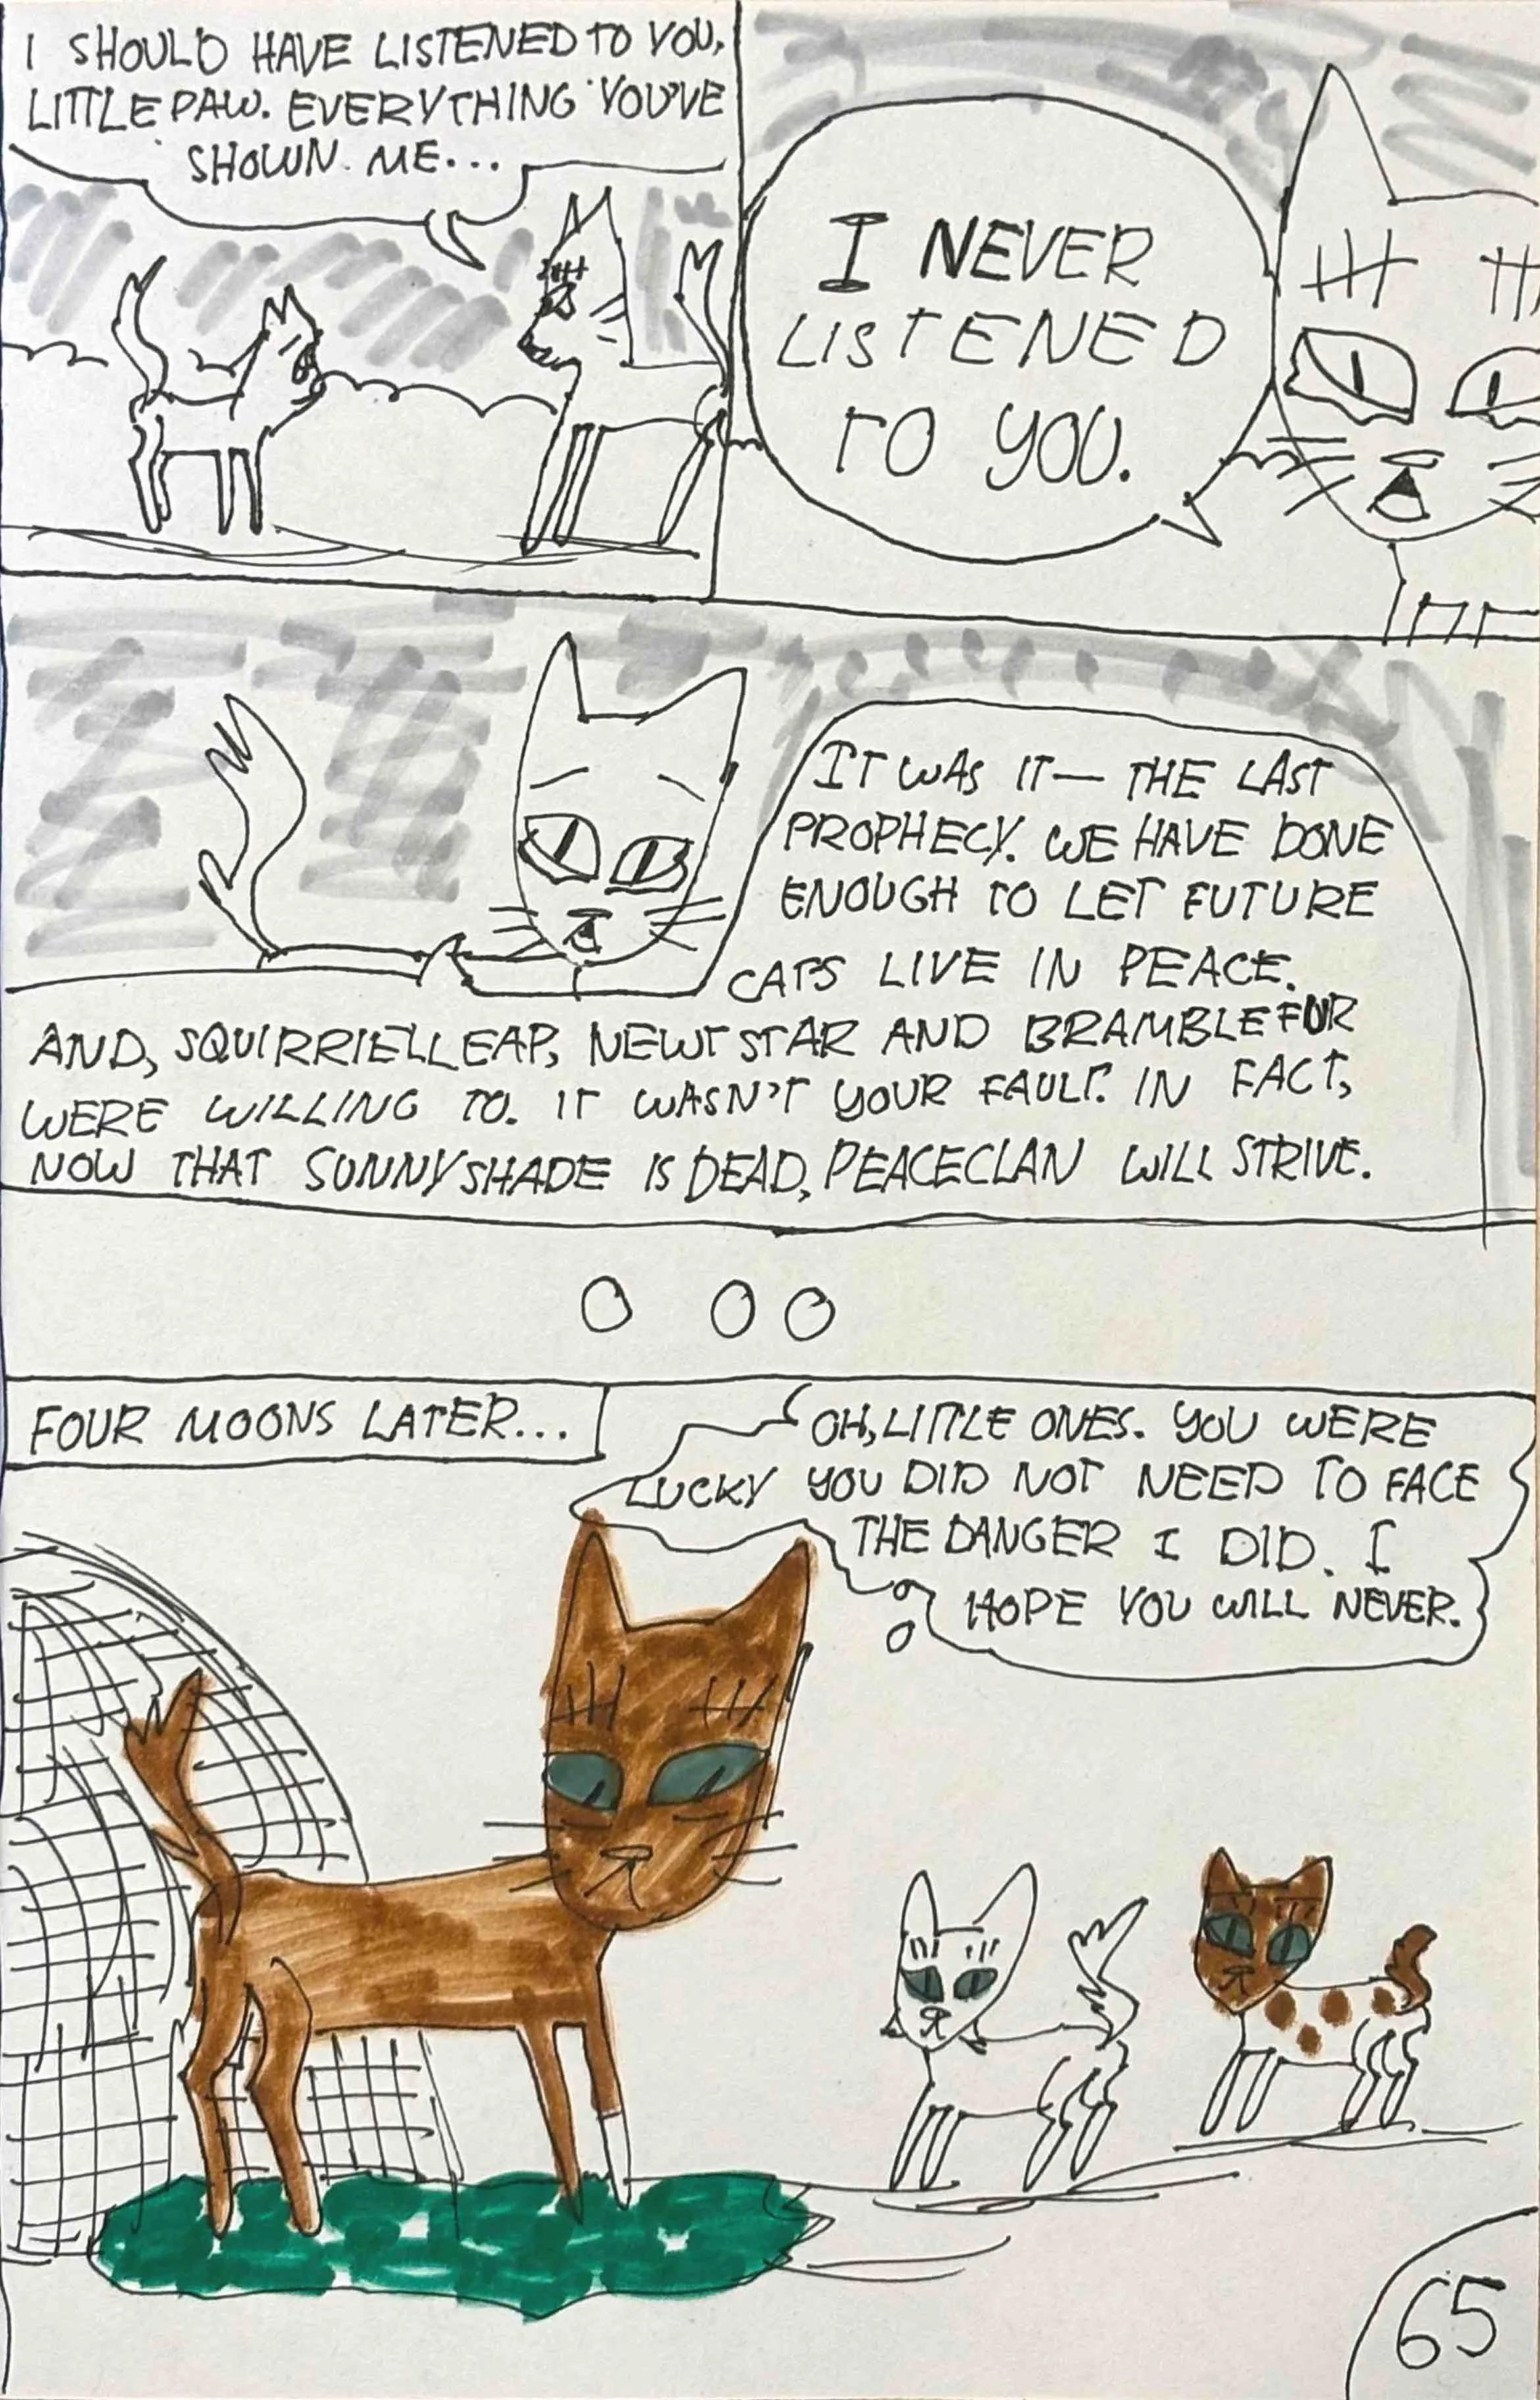 I SHOULD HAVE LISTENED TO YOU,
LITTLEPAW. EVERYTHING YOU'VE
SHOWN ME...
I NEVER
LISTENED
TO YOU.
IT WAS IT— THE LAST
PROPHECY. WE HAVE DONE
ENOUGH TO LET FUTURE
CATS LIVE IN PEACE.
AND, SQUIRRIELLEAP, NEWTSTAR AND BRAMBLEFUR
WERE WILLING TO. IT WASN'T YOUR FAULT. IN FACT,
NOW THAT SUNNYSHADE IS DEAD, PEACECLAN WILL STRIVE.
FOUR MOONS LATER...
OH, LITTLE ONES. YOU WERE
LUCKY YOU DID NOT NEED TO FACE
THE DANGER I DID. I
HOPE YOU WILL NEVER.
65